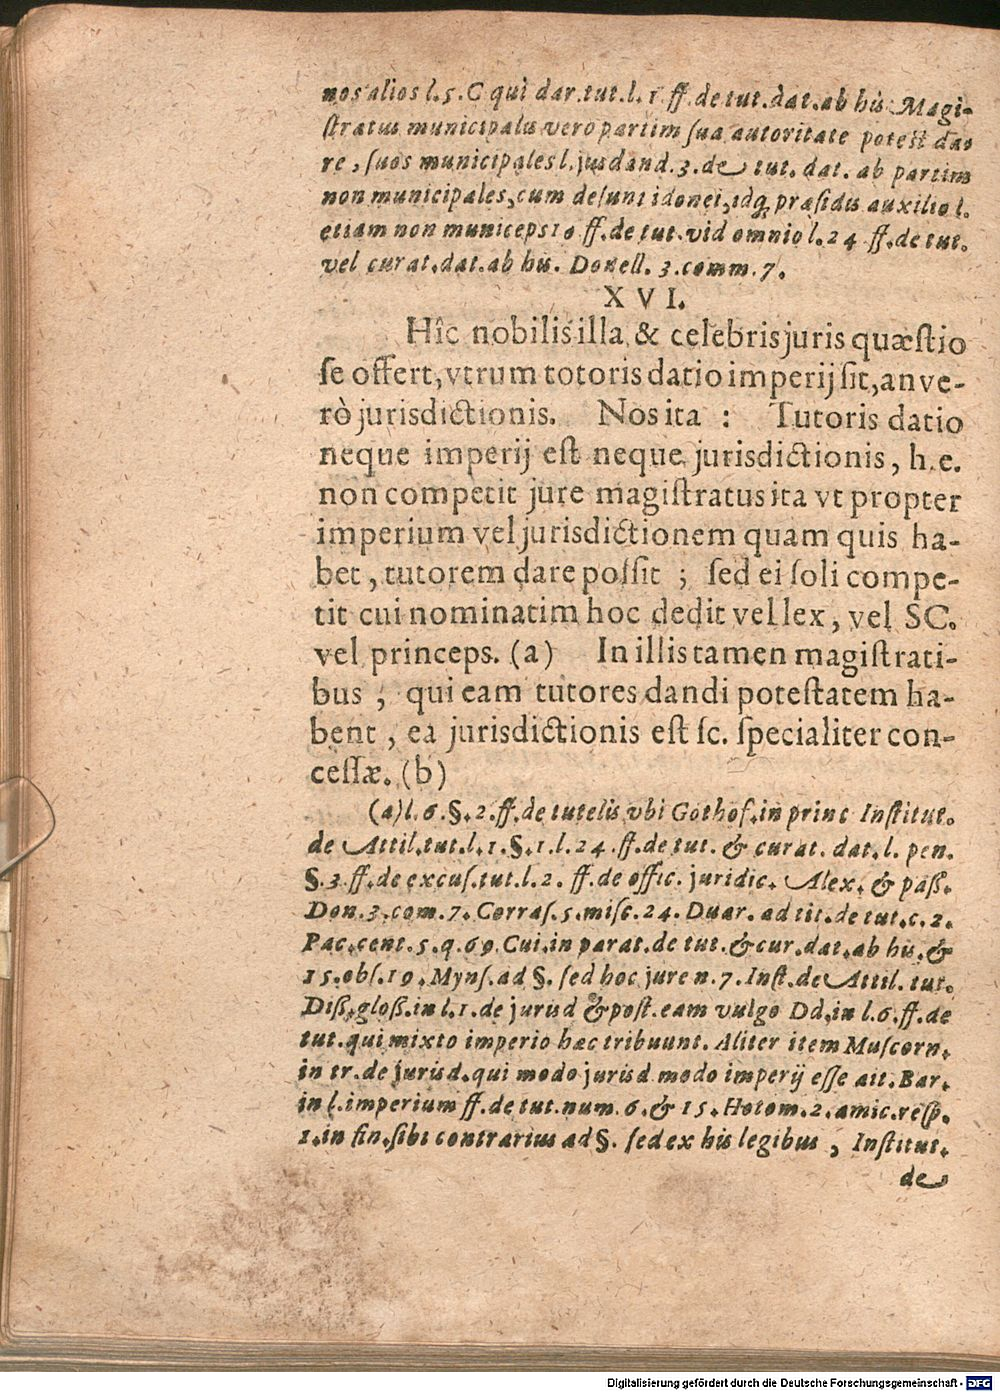 nos alios l.5.C qui dar.tut.l.1 ff.de tut.dat.ab his Magi-
ſtratus municipalis vero partim ſua autoritate potest da-
re, ſuos municipales l.jusdand.3.de tut. dat. ab partim
non municipales, cum deſunt idonei, idq́; præſidis auxilio l.
etiam non municeps 10 ff.de tut. vid omnio l.24 ff.de tut.
vel curat.dat.ab his. Donell. 3.comm.7.
XVI.
Hîc nobilis illa & celebris juris quæſtio
ſe offert, vtrum totoris datio imperij ſit, an ve-
rò jurisdictionis. Nos ita : Tutoris datio
neque imperij eſt neque jurisdictionis, h.e.
non competit jure magiſtratus ita vt propter
imperium vel jurisdictionem quam quis ha-
bet, tutorem dare poſſit ; ſed ei ſoli compe-
tit cui nominatim hoc dedit vel lex, vel SC.
vel princeps. (a) In illis tamen magiſtrati-
bus ; qui eam tutores dandi poteſtatem ha-
bent, ea jurisdictionis eſt ſc. ſpecialiter con-
ceſſæ. (b)
(a) l.6.§.2.ff.de tutelis vbi Gothof.in princ Inſtitut.
de Attil.tut.l.1.§.1.l.24.ff.de tut. & curat. dat.l. pen.
§.3 ff.de excuſ.tut.l.2. ff.de offic. juridic. Alex. & paſſ.
Don.3.com.7. Corraſ.5.miſc.24. Duar. ad tit.de tut.c.2.
Pac.cent.5.q.69. Cui.in parat.de tut.& cur.dat.ab his.&
15.obſ.19. Mynſ.ad §. ſed hoc jure n.7. Inſt.de Attil. tut.
Diſſ.gloſſ.in l.1.de jurisd & poſt.eam vulgo Dd.in l.6.ff.de
tut.qui mixto imperio hæc tribuunt. Aliter item Muſcorn.
in tr.de jurisd.qui modo jurisd modo imperij eſſe ait. Bar.
in l.imperium ff.de tut.num.6.& 15. Hotom.2.amic.reſp.
1.in fin.ſibi contrarius ad §. ſed ex his legibus, Inſtitut.
de
Digitalisierung gefördert durch die Deutsche Forschungsgemeinschaft - DFG